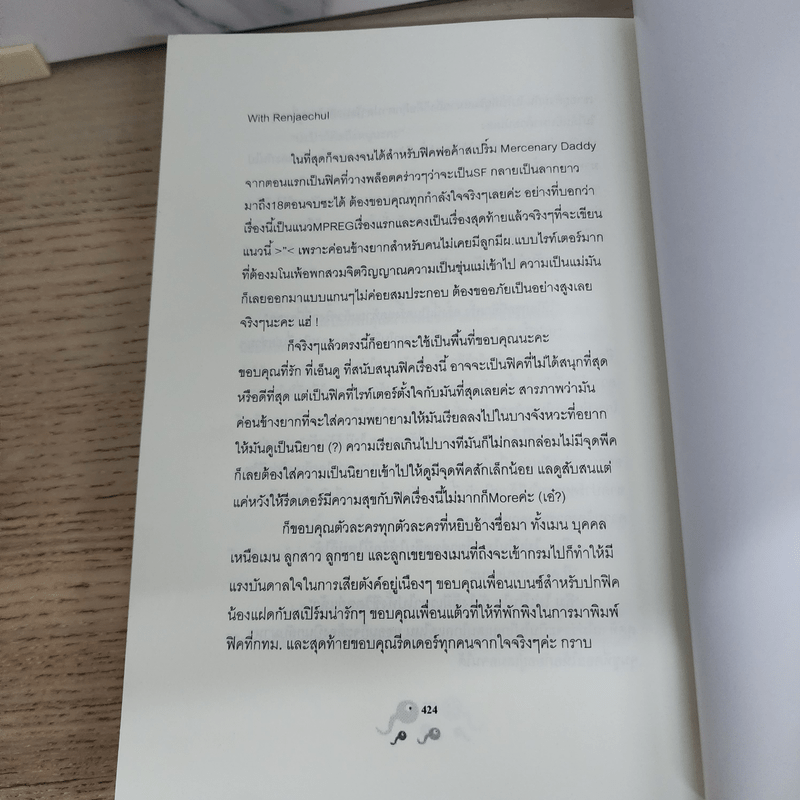 With Renjaechul
ในที่สุดก็จบลงจนได้สำหรับฟิคพ่อค้าสเปิร์ม Mercenary Daddy
จากตอนแรกเป็นฟิคที่วางพล็อตคร่าวๆว่าจะเป็นSF กลายเป็นลากยาว
มาถึง18ตอนจบซะได้ ต้องขอบคุณทุกกำลังใจจริงๆเลยค่ะ อย่างที่บอกว่า
เรื่องนี้เป็นแนวMPREGเรื่องแรกและคงเป็นเรื่องสุดท้ายแล้วจริงๆที่จะเขียน
แนวนี้ >"< เพราะค่อนข้างยากสำหรับคนไม่เคยมีลูกมีผ.แบบไรท์เตอร์มาก
ที่ต้องมโนเพ้อพกสวมจิตวิญญาณความเป็นขุ่นแม่เข้าไป ความเป็นแม่มัน
ก็เลยออกมาแบบแกนๆไม่ค่อยสมประกอบ ต้องขออภัยเป็นอย่างสูงเลย
จริงๆนะคะ แฮ่ !
ก็จริงๆแล้วตรงนี้ก็อยากจะใช้เป็นพื้นที่ขอบคุณนะคะ
ขอบคุณที่รัก ที่เอ็นดู ที่สนับสนุนฟิคเรื่องนี้ อาจจะเป็นฟิคที่ไม่ได้สนุกที่สุด
หรือดีที่สุด แต่เป็นฟิคที่ไรท์เตอร์ตั้งใจกับมันที่สุดเลยค่ะ สารภาพว่ามัน
ค่อนข้างยากที่จะใส่ความพยายามให้มันเรียลลงไปในบางจังหวะที่อยาก
ให้มันดูเป็นนิยาย (?) ความเรียลเกินไปบางทีมันก็ไม่กลมกล่อมไม่มีจุดพีค
ก็เลยต้องใส่ความเป็นนิยายเข้าไปให้ดูมีจุดพีคสักเล็กน้อย แลดูสับสนแต่
แค่หวังให้รีดเดอร์มีความสุขกับฟิคเรื่องนี้ไม่มากก็Moreค่ะ (เอ๋?)
ก็ขอบคุณตัวละครทุกตัวละครที่หยิบอ้างชื่อมา ทั้งเมน บุคคล
เหนือเมน ลูกสาว ลูกชาย และลูกเขยของเมนที่ถึงจะเข้ากรมไปก็ทำให้มี
แรงบันดาลใจในการเสียตังค์อยู่เนืองๆ ขอบคุณเพื่อนเบนซ์สำหรับปกฟิค
น้องแฝดกับสเปิร์มน่ารักๆ ขอบคุณเพื่อนแต้วที่ให้ที่พักพิงในการมาพิมพ์
ฟิคที่กทม. และสุดท้ายขอบคุณรีดเดอร์ทุกคนจากใจจริงๆค่ะ กราบ
424